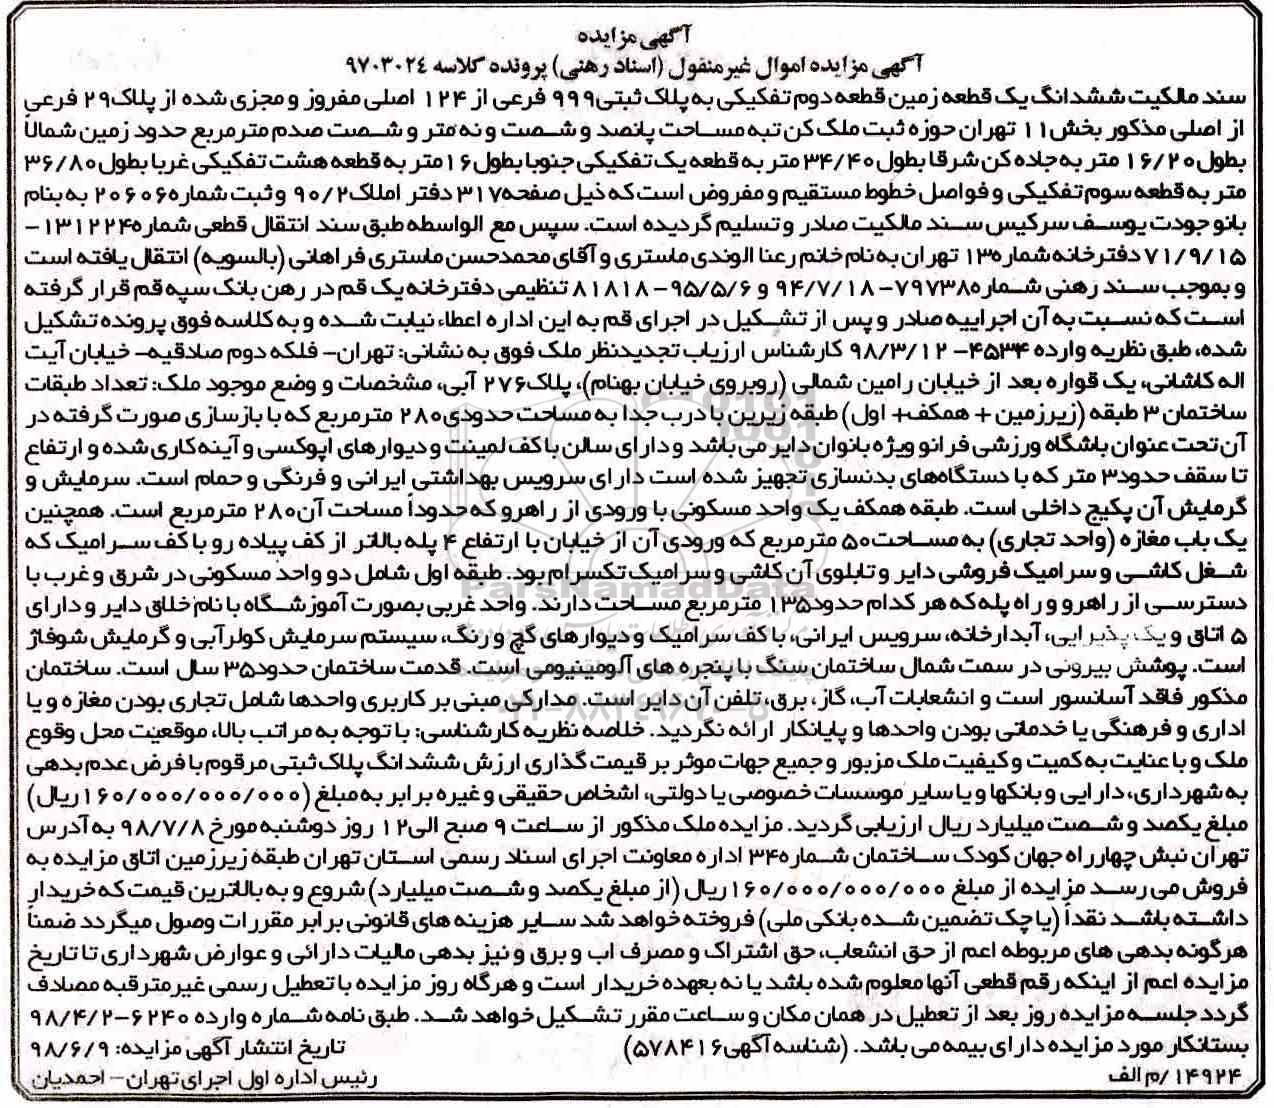 آگهی مزایده
آگهی مزایده اموال غیرمنقول (اسناد رهنی) پرونده کلاسه ۹۷۰۳۰۲۴
سند مالکیت ششدانگ یک قطعه زمین قطعه دوم تفکیکی به پلاک ثبتی ۹۹۹ فرعی از ۱۲۴ اصلی مفروز و مجزی شده از پلاک ۲۹ فرعی
از اصلی مذکور بخش ۱۱ تهران حوزه ثبت ملک کن تبه مساحت پانصد و شصت و نه متر و شصت صدم مترمربع حدود زمین شمالاً
بطول ۱۶/۲۰ متر به جاده کن شرقا بطول ۳۴/۴۰ متر به قطعه یک تفکیکی جنوبا بطول ۱۶ متر به قطعه هشت تفکیکی غربا بطول ۳۶/۸۰
متر به قطعه سوم تفکیکی و فواصل خطوط مستقیم و مفروض است که ذیل صفحه ۳۱۷ دفتر املاک ۹۰/۲ و ثبت شماره ۲۰۶۰۶ به بنام
بانو جودت یوسف سرکیس سند مالکیت صادر و تسلیم گردیده است. سپس مع الواسطه طبق سند انتقال قطعی شماره ۱۳۱۲۲۴-
۷۱/۹/۱۵ دفترخانه شماره ۱۳ تهران به نام خانم رعنا الوندی ماستری و آقای محمدحسن ماستری فراهانی (بالسویه) انتقال یافته است
و بموجب سند رهنی شماره ۷۹۷۳۸- ۹۴/۷/۱۸ و ۹۵/۵/۶- ۸۱۸۱۸ تنظیمی دفترخانه یک قم در رهن بانک سپه قم قرار گرفته
است که نسبت به آن اجراییه صادر و پس از تشکیل در اجرای قم به این اداره اعطاء نیابت شده و به کلاسه فوق پرونده تشکیل
شده، طبق نظریه وارده ۴۵۳۴- ۹۸/۳/۱۲ کارشناس ارزیاب تجدیدنظر ملک فوق به نشانی: تهران- فلکه دوم صادقیه- خیابان آیت
اله کاشانی، یک قواره بعد از خیابان رامین شمالی (روبروی خیابان بهنام)، پلاک ۲۷۶ آبی، مشخصات و وضع موجود ملک: تعداد طبقات
ساختمان ۳ طبقه (زیرزمین + همکف+ اول) طبقه زیرین با درب جدا به مساحت حدودی ۲۸۰ مترمربع که با بازسازی صورت گرفته در
آن تحت عنوان باشگاه ورزشی فرانو ویژه بانوان دایر می باشد و دارای سالن با کف لمینت و دیوارهای اپوکسی و آینه کاری شده و ارتفاع
تا سقف حدود ۳ متر که با دستگاه‌های بدنسازی تجهیز شده است دارای سرویس بهداشتی ایرانی و فرنگی و حمام است. سرمایش و
گرمایش آن پکیج داخلی است. طبقه همکف یک واحد مسکونی با ورودی از راهرو که حدوداً مساحت آن ۲۸۰ مترمربع است. همچنین
یک باب مغازه (واحد تجاری) به مساحت ۵۰ مترمربع که ورودی آن از خیابان با ارتفاع ۴ پله بالاتر از کف پیاده رو با کف سرامیک که
شغل کاشی و سرامیک فروشی دایر و تابلوی آن کاشی و سرامیک تکسرام بود. طبقه اول شامل دو واحد مسکونی در شرق و غرب با
دسترسی از راهرو و راه پله که هر کدام حدود ۱۳۵ مترمربع مساحت دارند. واحد غربی بصورت آموزشگاه با نام خلاق دایر و دارای
۵ اتاق و یک پذیرایی، آبدارخانه، سرویس ایرانی، با کف سرامیک و دیوارهای گچ و رنگ، سیستم سرمایش کولرآبی و گرمایش شوفاژ
است. پوشش بیرونی در سمت شمال ساختمان سنگ با پنجره های آلومینیومی است. قدمت ساختمان حدود ۳۵ سال است. ساختمان
مذکور فاقد آسانسور است و انشعابات آب، گاز، برق، تلفن آن دایر است. مدارکی مبنی بر کاربری واحدها شامل تجاری بودن مغازه و یا
اداری و فرهنگی یا خدماتی بودن واحدها و پایانکار ارائه نگردید. خلاصه نظریه کارشناسی: با توجه به مراتب بالا، موقعیت محل وقوع
ملک و با عنایت به کمیت و کیفیت ملک مزبور و جمیع جهات موثر بر قیمت گذاری ارزش ششدانگ پلاک ثبتی مرقوم با فرض عدم بدهی
به شهرداری، دارایی و بانکها و یا سایر موسسات خصوصی یا دولتی، اشخاص حقیقی و غیره برابر به مبلغ (۱۶۰/۰۰۰/۰۰۰/۰۰۰ ریال)
مبلغ یکصد و شصت میلیارد ریال ارزیابی گردید. مزایده ملک مذکور از ساعت ۹ صبح الی ۱۲ روز دوشنبه مورخ ۹۸/۷/۸ به آدرس
تهران نبش چهارراه جهان کودک ساختمان شماره ۳۴ اداره معاونت اجرای اسناد رسمی استان تهران طبقه زیرزمین اتاق مزایده به
فروش می رسد مزایده از مبلغ ۱۶۰/۰۰۰/۰۰۰/۰۰۰ ریال (از مبلغ یکصد و شصت میلیارد) شروع و به بالاترین قیمت که خریدار
داشته باشد نقداً (یا چک تضمین شده بانکی ملی) فروخته خواهد شد سایر هزینه های قانونی برابر مقررات وصول میگردد ضمناً
هرگونه بدهی های مربوطه اعم از حق انشعاب، حق اشتراک و مصرف اب و برق و نیز بدهی مالیات دارائی و عوارض شهرداری تا تاریخ
مزایده اعم از اینکه رقم قطعی آنها معلوم شده باشد یا نه بعهده خریدار است و هرگاه روز مزایده با تعطیل رسمی غیرمترقبه مصادف
گردد جلسه مزایده روز بعد از تعطیل در همان مکان و ساعت مقرر تشکیل خواهد شد. طبق نامه شماره وارده ۶۲۴۰-۹۸/۴/۲
بستانکار مورد مزایده دارای بیمه می باشد. (شناسه آگهی ۵۷۸۴۱۶) تاریخ انتشار آگهی مزایده: ۹۸/۶/۹
۱۴۹۲۴/م الف رئیس اداره اول اجرای تهران- احمدیان
ParsNamadData